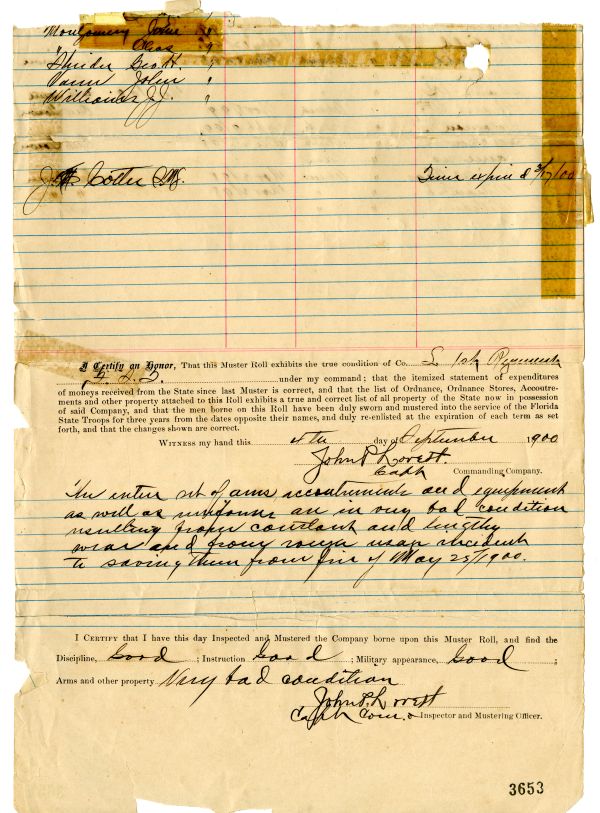 Montgomery John "
" Chas "
Shider Geo H. "
Vann John "
Williams J.J. "
J. Cotter Time expired 3/17/00
I Certify on Honor, That this Muster Roll exhibits the true condition of Co. L 1st Regiment
F. S. T. under my command; that the itemized statement of expenditures
of moneys received from the State since last Muster is correct, and that the list of Ordnance, Ordnance Stores, Accoutre-
ments and other property attached to this Roll exhibits a true and correct list of all property of the State now in possession
of said Company, and that the men borne on this Roll have been duly sworn and mustered into the service of the Florida
State Troops for three years from the dates opposite their names, and duly re-enlisted at the expiration of each term as set
forth, and that the changes shown are correct.
Witness my hand this 4th day of September 1900
John P. Lovest.
Capt Commanding Company.
The entire set of arms accoutrements and equipment
as well as uniforms are in very bad condition
resulting from constant and lengthy
wear and from rough usage incident
to saving them from fire of May 25/1900.
I Certify that I have this day Inspected and Mustered the Company borne upon this Muster Roll, and find the
Discipline, Good; Instruction Good; Military appearance, Good;
Arms and other property Very bad condition
John P. Lovest
Capt Com. & Inspector and Mustering Officer.
3653